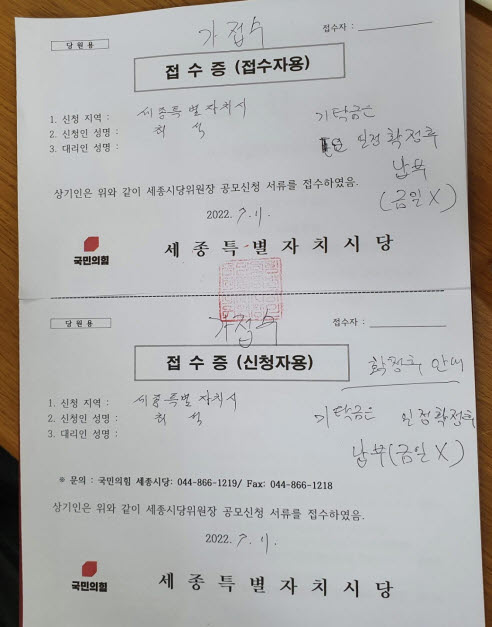 당원용
가 접수
접수자 :
접 수 증 (접수자용)
1. 신청 지역 : 세종특별자치시
2. 신청인 성명 : 최 석
3. 대리인 성명 :
기탁금은
일정확정후
납부
(금일 X)
상기인은 위와 같이 세종시당위원장 공모신청 서류를 접수하였음.
2022. 7. 11.
국민의힘
세 종 특 별 자 치 시 당
당원용
가접수
접수자 :
접 수 증 (신청자용)
확정후 안내
1. 신청 지역 : 세종특별자치시
2. 신청인 성명 : 최 석
3. 대리인 성명 :
기탁금은 일정확정후
납부(금일 X)
※ 문의 : 국민의힘 세종시당: 044-866-1219/ Fax: 044-866-1218
상기인은 위와 같이 세종시당위원장 공모신청 서류를 접수하였음.
2022. 7. 11.
국민의힘
세 종 특 별 자 치 시 당